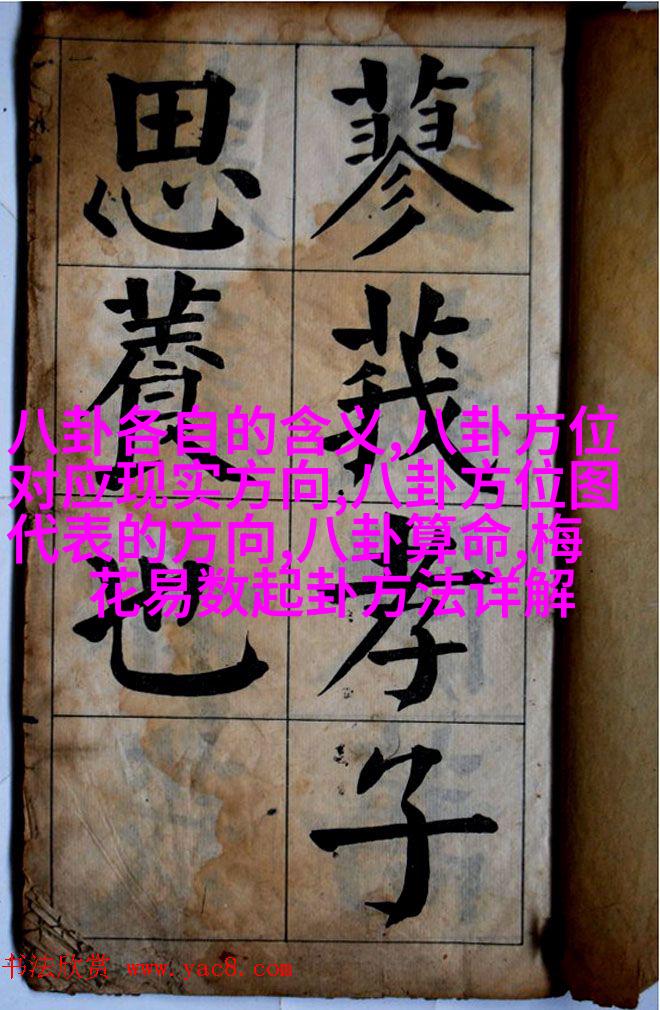 蓼莪孝子
思養也
八卦各自的含义,八卦方位
对应现实方向,八卦方位图
代表的方向,八卦算命,梅
花易数起卦方法详解
书法欣赏 www.yac8.com